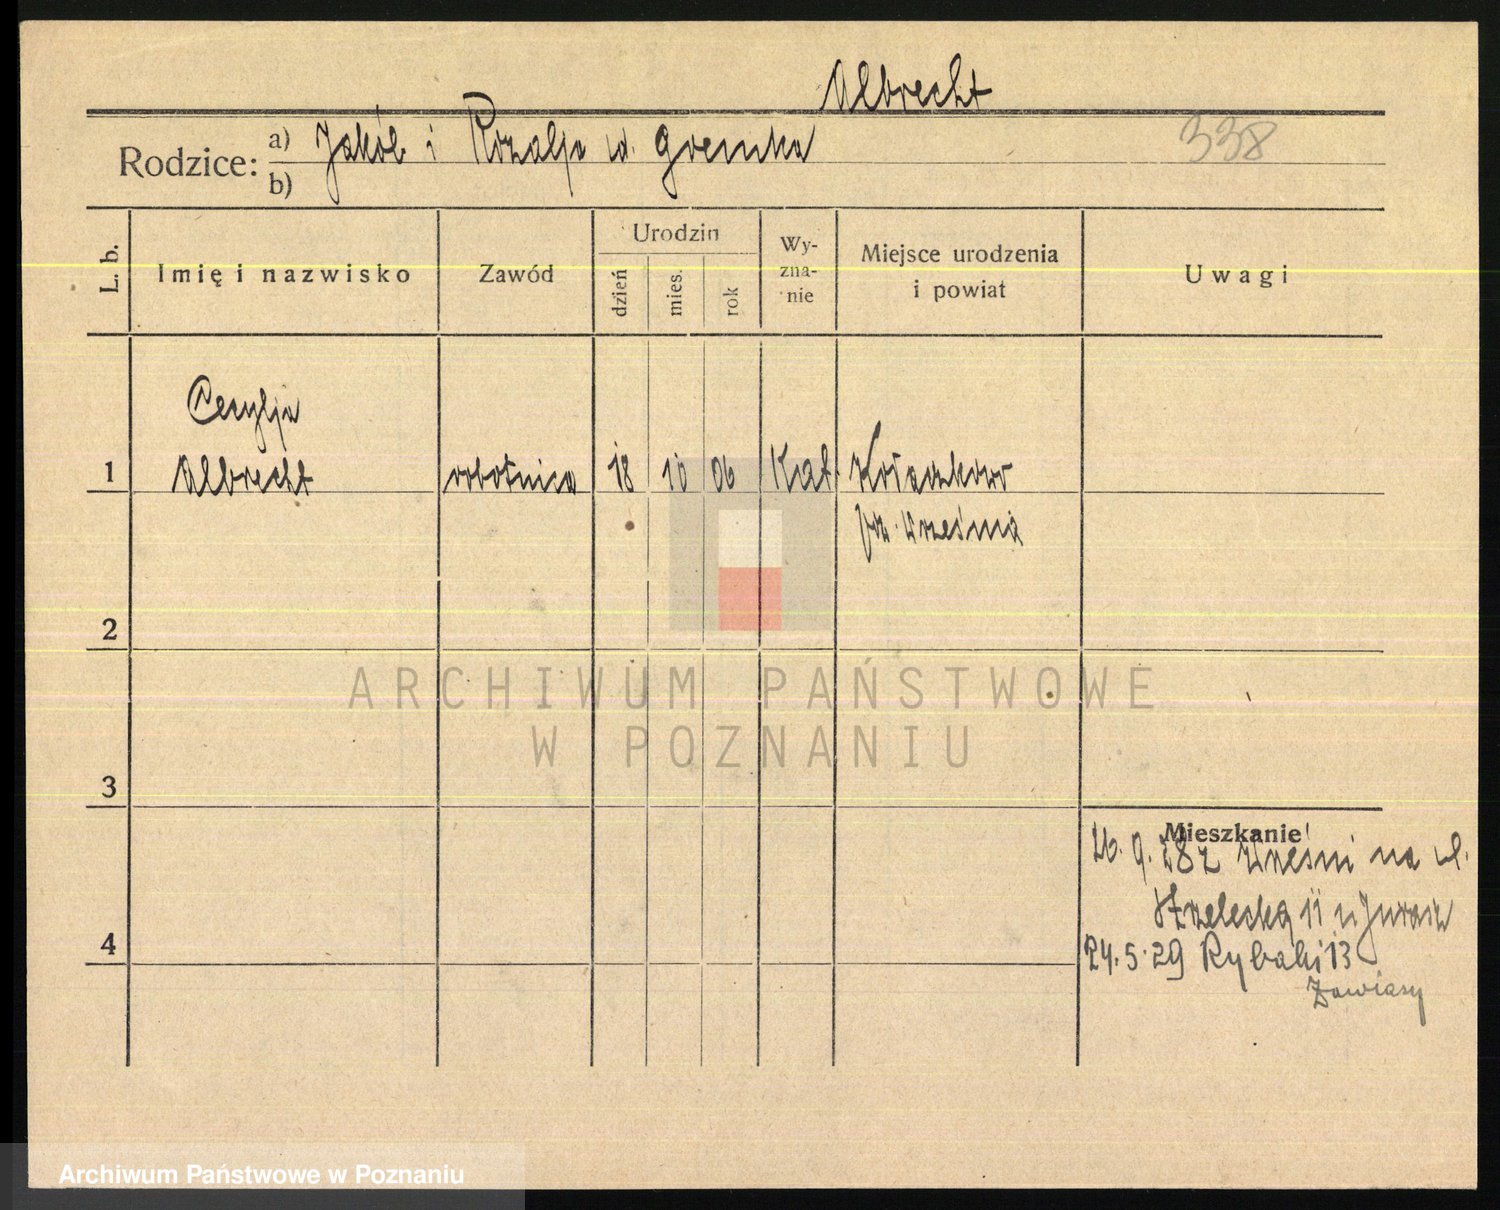 Albrecht
Rodzice: a) Jakób i Rozalja
338
b)
L. b.
Imię i nazwisko
Zawód
Urodzin
dzień
mies.
rok
Wy-
zna-
nie
Miejsce urodzenia
i powiat
Uwagi
Cecylja
1 Albrecht robotnica 18 10 06 Kat. Kołaczkowo
pw. Września
2
ARCHIWUM PAŃSTWOWE
W POZNANIU
3
Mieszkanie
26. 9. 28 z Wrześni na ul.
Strzelecką 11 u
4
24. 5. 29 Rybaki 13
Zawiasy
Archiwum Państwowe w Poznaniu